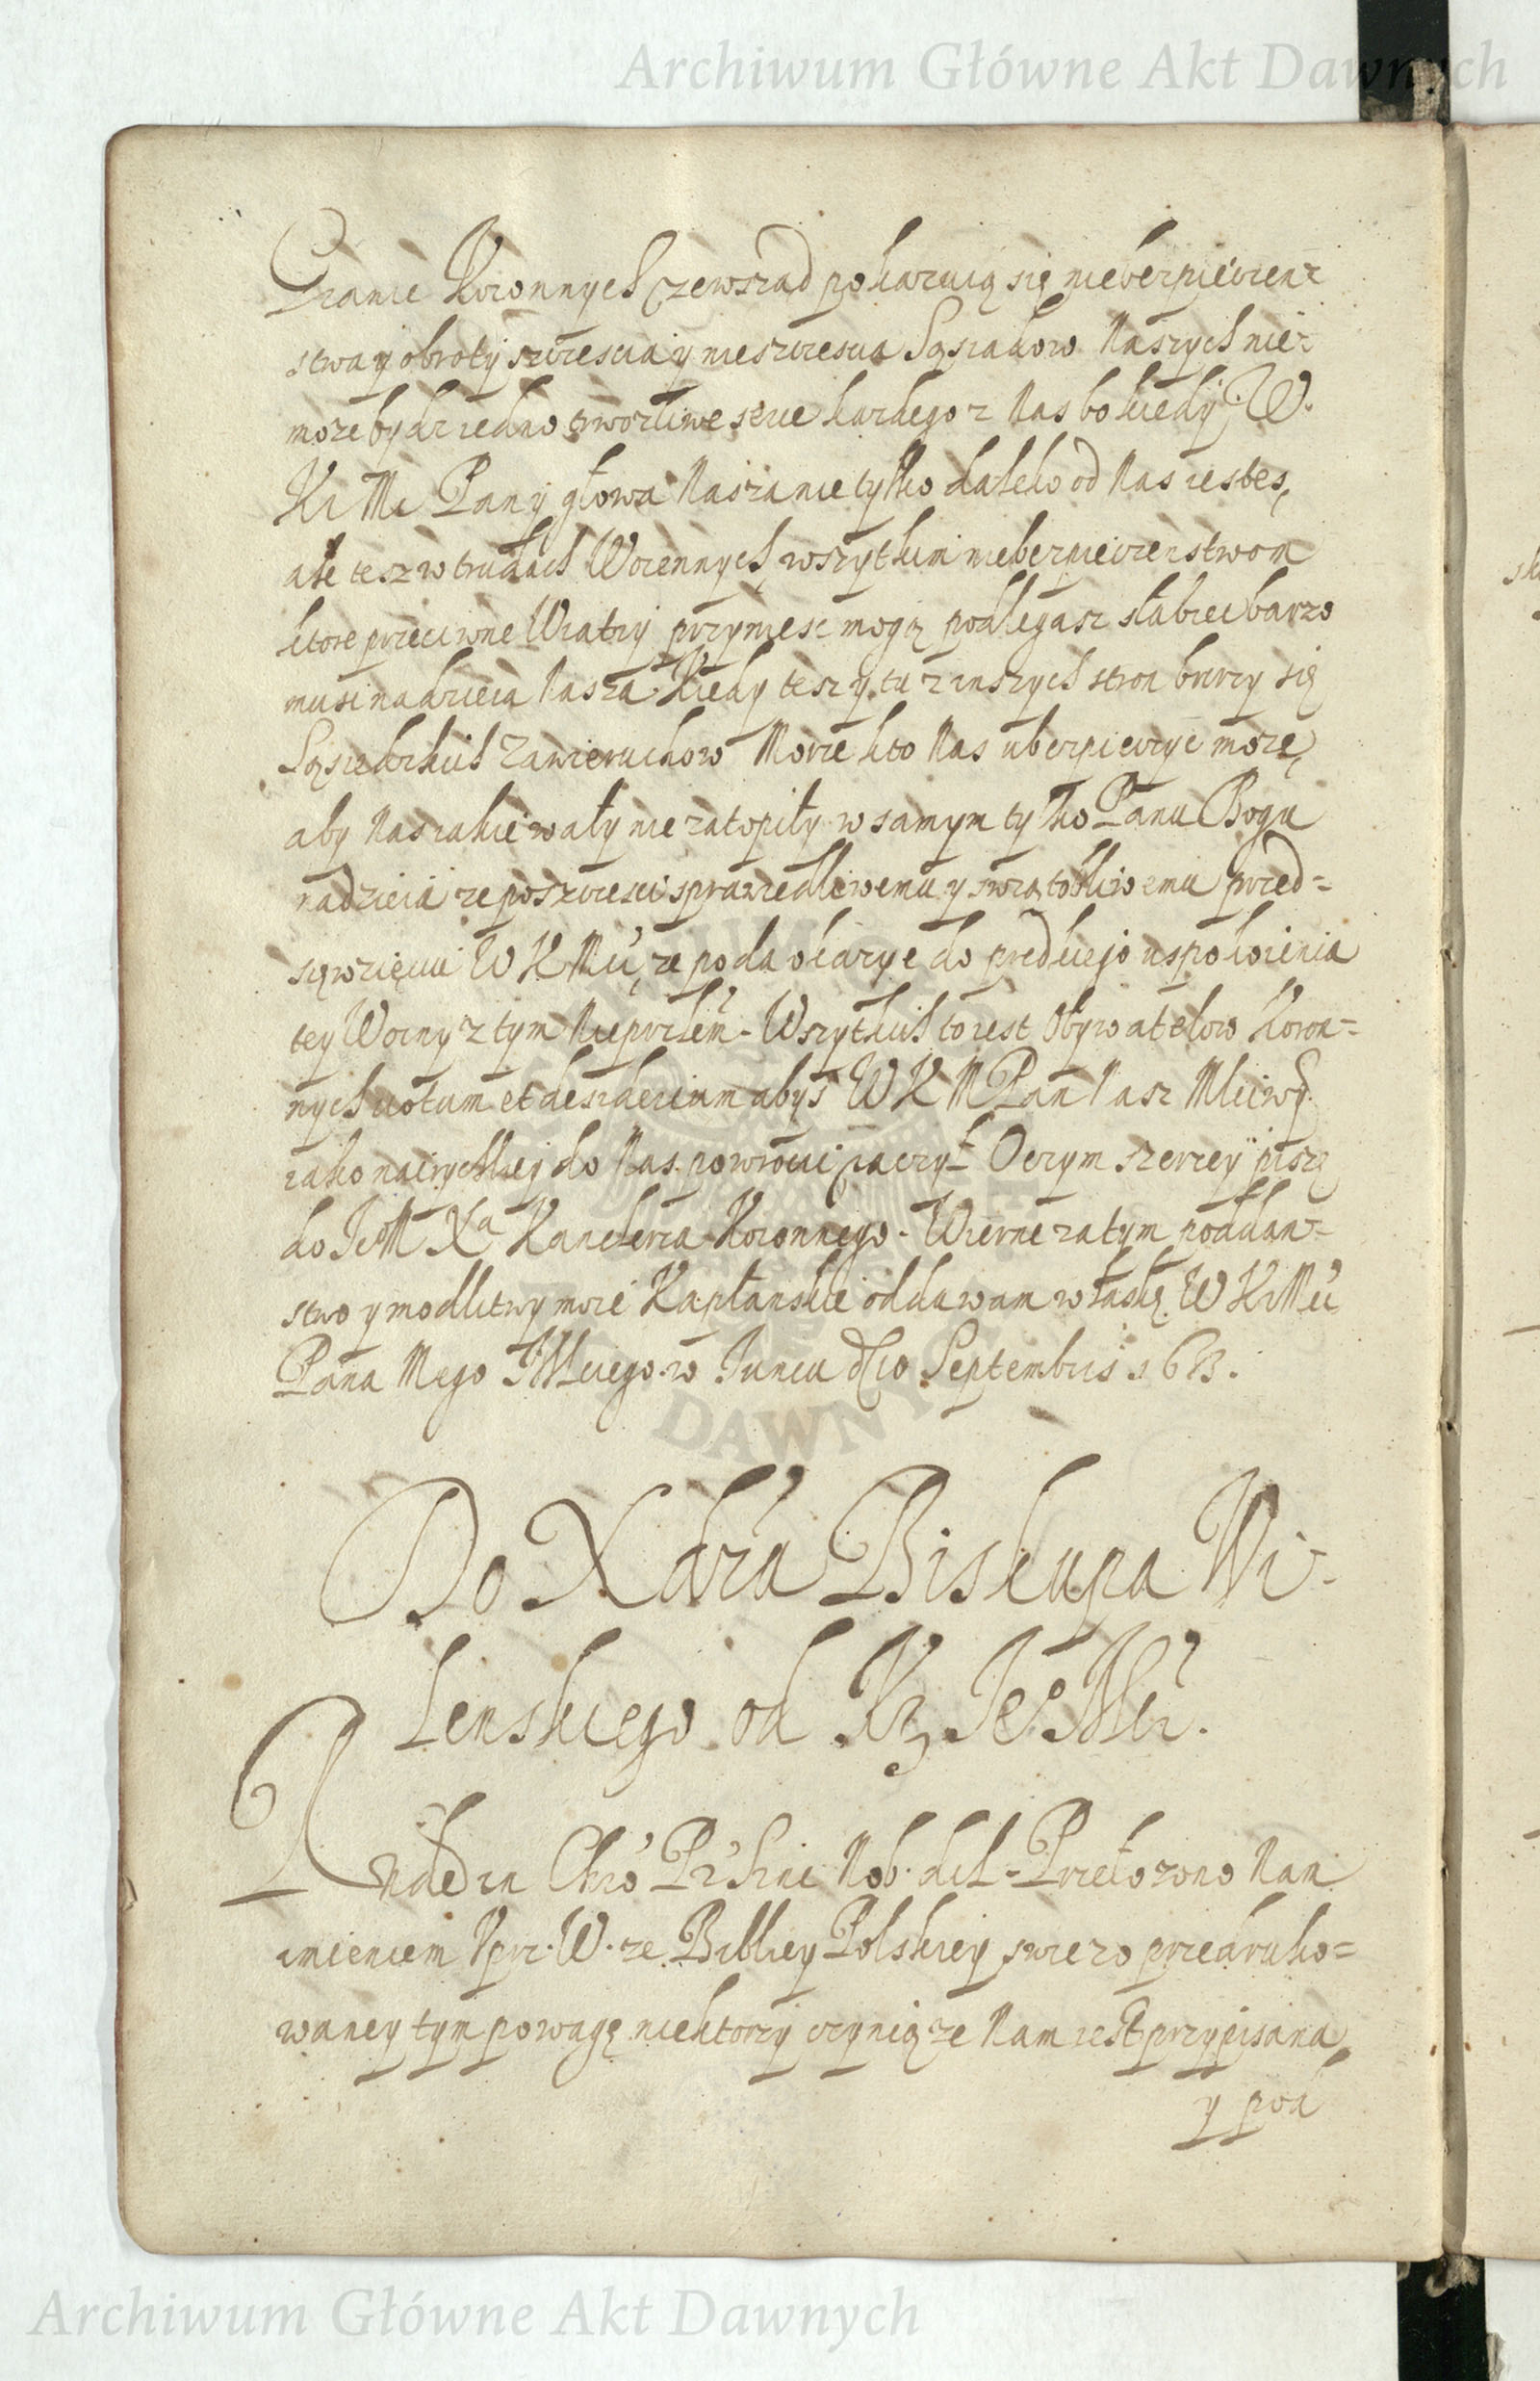 Archiwum Główne Akt Dawnych
Granic Koronnych zewsząd pokazuią się niebezpieczen=
stwa y obroty szczescia y nieszczescia Sąsiadow Naszych nie=
moze bydz iedno trwozliwe serce kazdego z Nas bo kiedy W.
K Mć Pan y głowa Nasza nie tylko daleko od Nas iestes,
ale tesz w trudach Woiennych, wszytkim niebezpieczenstwom
ktore przeciwne Wiatry przyniesc mogą podlegasz słabiec barzo
musi nadzieia Nasza. Kiedy tesz y tu z inszych stron burzy się
Sąsiedzkich Zawieruchow Morze kto Nas ubezpieczyć może,
aby Nas iakie wały nie zatopiły w samym tylko Panu Bogu
nadzieia ze poszczesci sprawiedliwemu y swiątobliwemu przed=
sięwzięciu W K Mći, ze poda okazye do prędkiego uspokoienia
tey Woiny z tym Nieprzlem. Wszytkich to iest Obywatelow Koron=
nych votum et desiderium abyś W K M Pan Nasz Młciwy
iako nairychley do Nas powrocić raczył. O czym szerzey piszę
do JeM Xa Kanclerza Koronnego. Wierne zatym poddan=
stwo y modlitwy moie Kapłanskie oddawam w łaskę W K Mći
Pana Mego Młciego. w Juncu d 10 Septembris 1613.
Do Xdza Biskupa Wi-
lenskiego od K Je° Mći.
Rnde in Chro Pr Sinc Nob. dil. Przełozono Nam
imieniem Uprz. W. ze Bibliey Polskiey swiezo przedruko=
waney tym powagę niektorzy czynią ze Nam iest przypisana,
y pod
DAWNYCH
Archiwum Główne Akt Dawnych